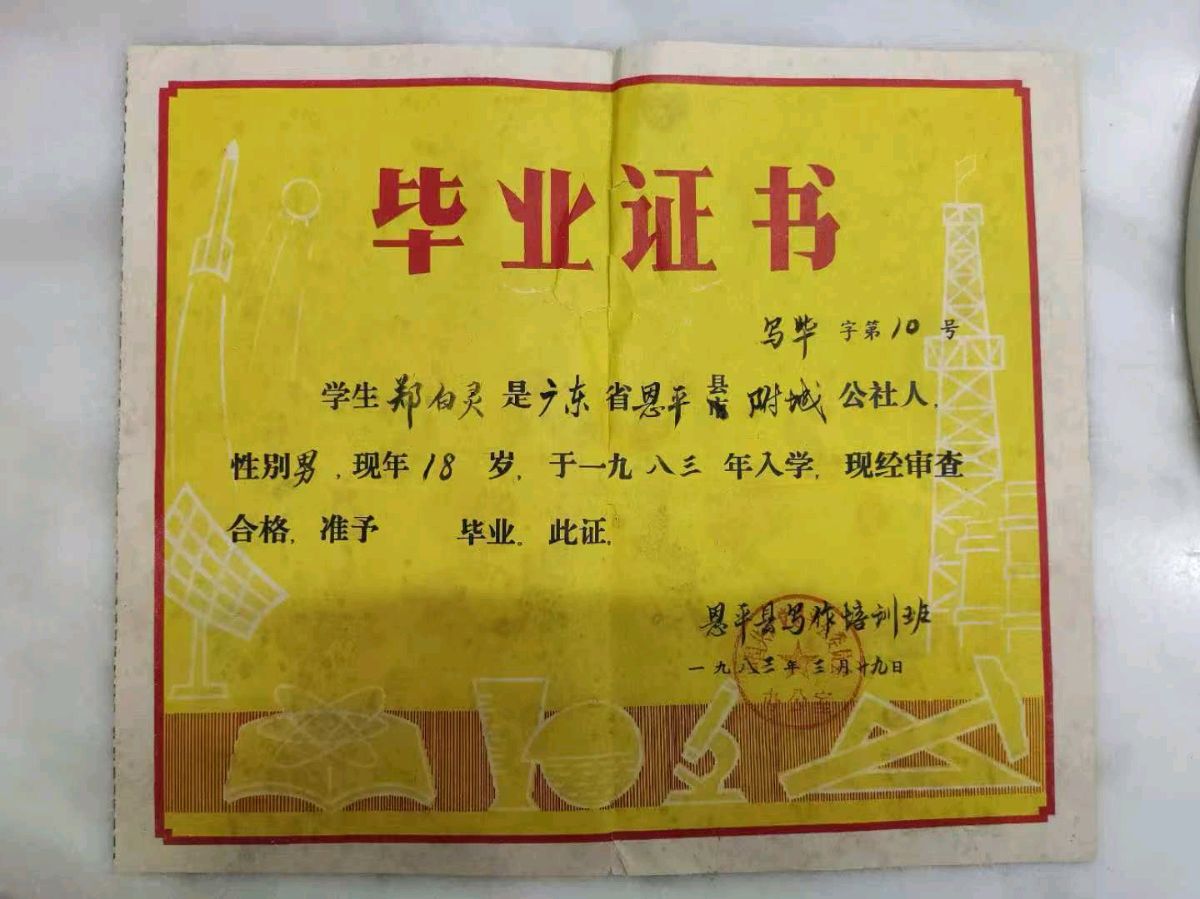 毕业证书
写毕字第10号
学生郑白灵是广东省恩平县附城公社人,
性别男,现年18岁,于一九八三年入学,现经审查
合格,准予 毕业。此证。
恩平县写作培训班
一九八三年三月廿九日
办公室